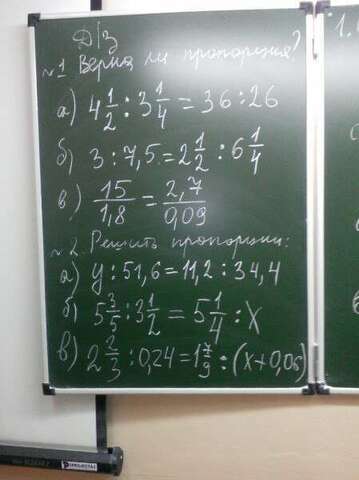 Д/З
№1 Верна ли пропорция?
а) 4 1/2 : 3 1/4 = 36 : 26
б) 3 : 7,5 = 2 1/2 : 6 1/4
в) 15/1,8 = 2,7/0,09
№2. Решить пропорции:
а) y : 51,6 = 11,2 : 34,4
б) 5 3/5 : 3 1/2 = 5 1/4 : x
в) 2 2/3 : 0,24 = 1 7/9 : (x+0,06)
1.